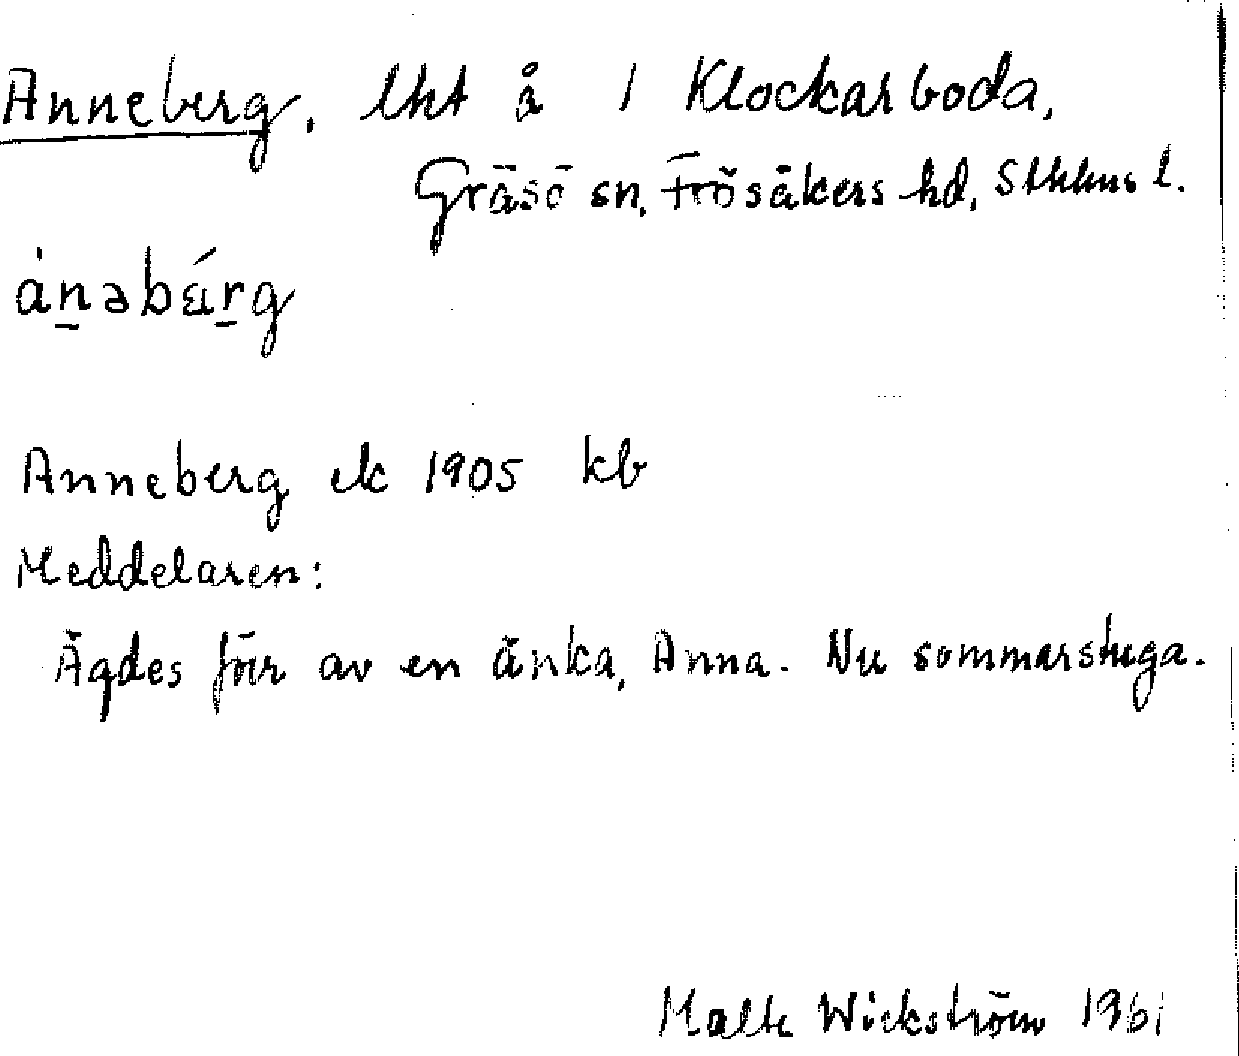 Anneberg, lht å 1 Klockarboda,
Gräsö sn, Frösåkers hd, Sthlms l.
ànəbǽrg
Anneberg ek 1905 kb
Meddelaren:
Ägdes förr av en änka, Anna. Nu sommarstuga.
Malte Wickström 1961